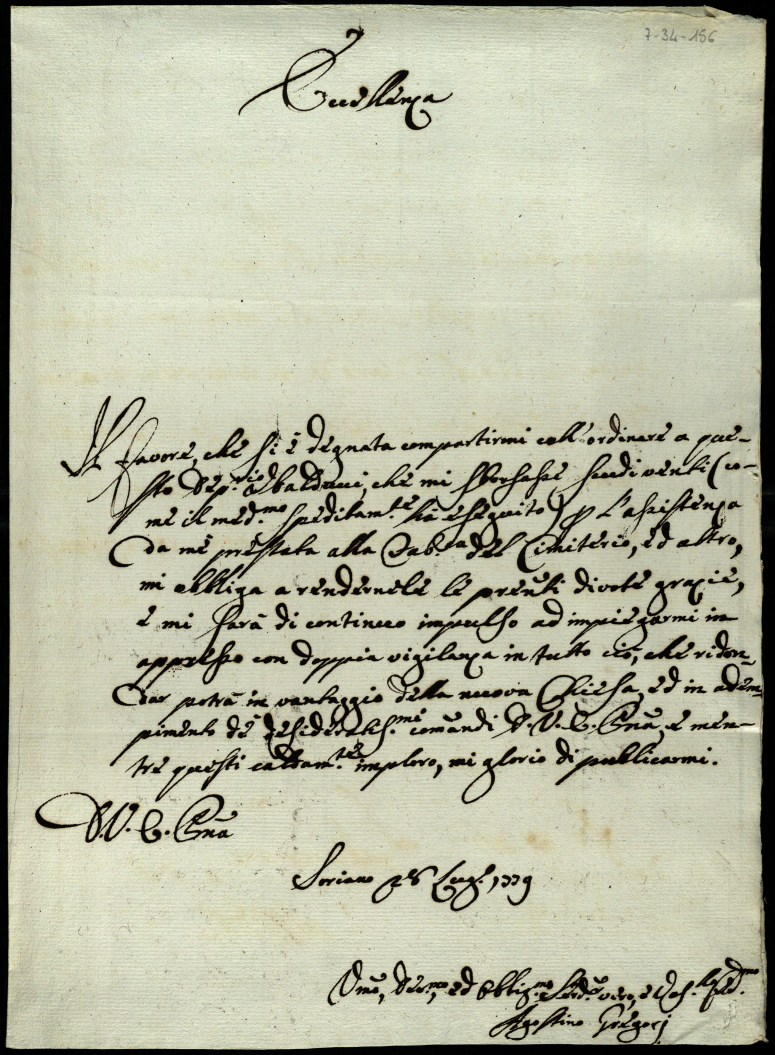 7-34-186
Eccellenza
Il favore, che si è degnata compartirmi coll'ordinare a que-
sto Dep.rio Balducci, che mi sborsasse scudi venti (co-
me il med.mo speditam.te hà eseguito) p L'assistenza
da me prestata alla Fab.ca del Cimiterio, ed altro,
mi obbliga a rendernele le pñti divote grazie,
e mi sarà di continuo impulso ad impiegarmi in
appresso con doppia vigilanza in tutto ciò, che ridon-
dar potrà in vantaggio della nuova Chiesa, ed in adem-
pimento de desideratis.mi comandi D. V. E. Pñã, e men-
tre questi caldam.te imploro, mi glorio di publicarmi.
D. V. E. Pñã
Soriano 28 Lug.o 1779
Umo, Dev.mo, ed Obblig.mo Serv.e vero, e
Agostino Gregorj